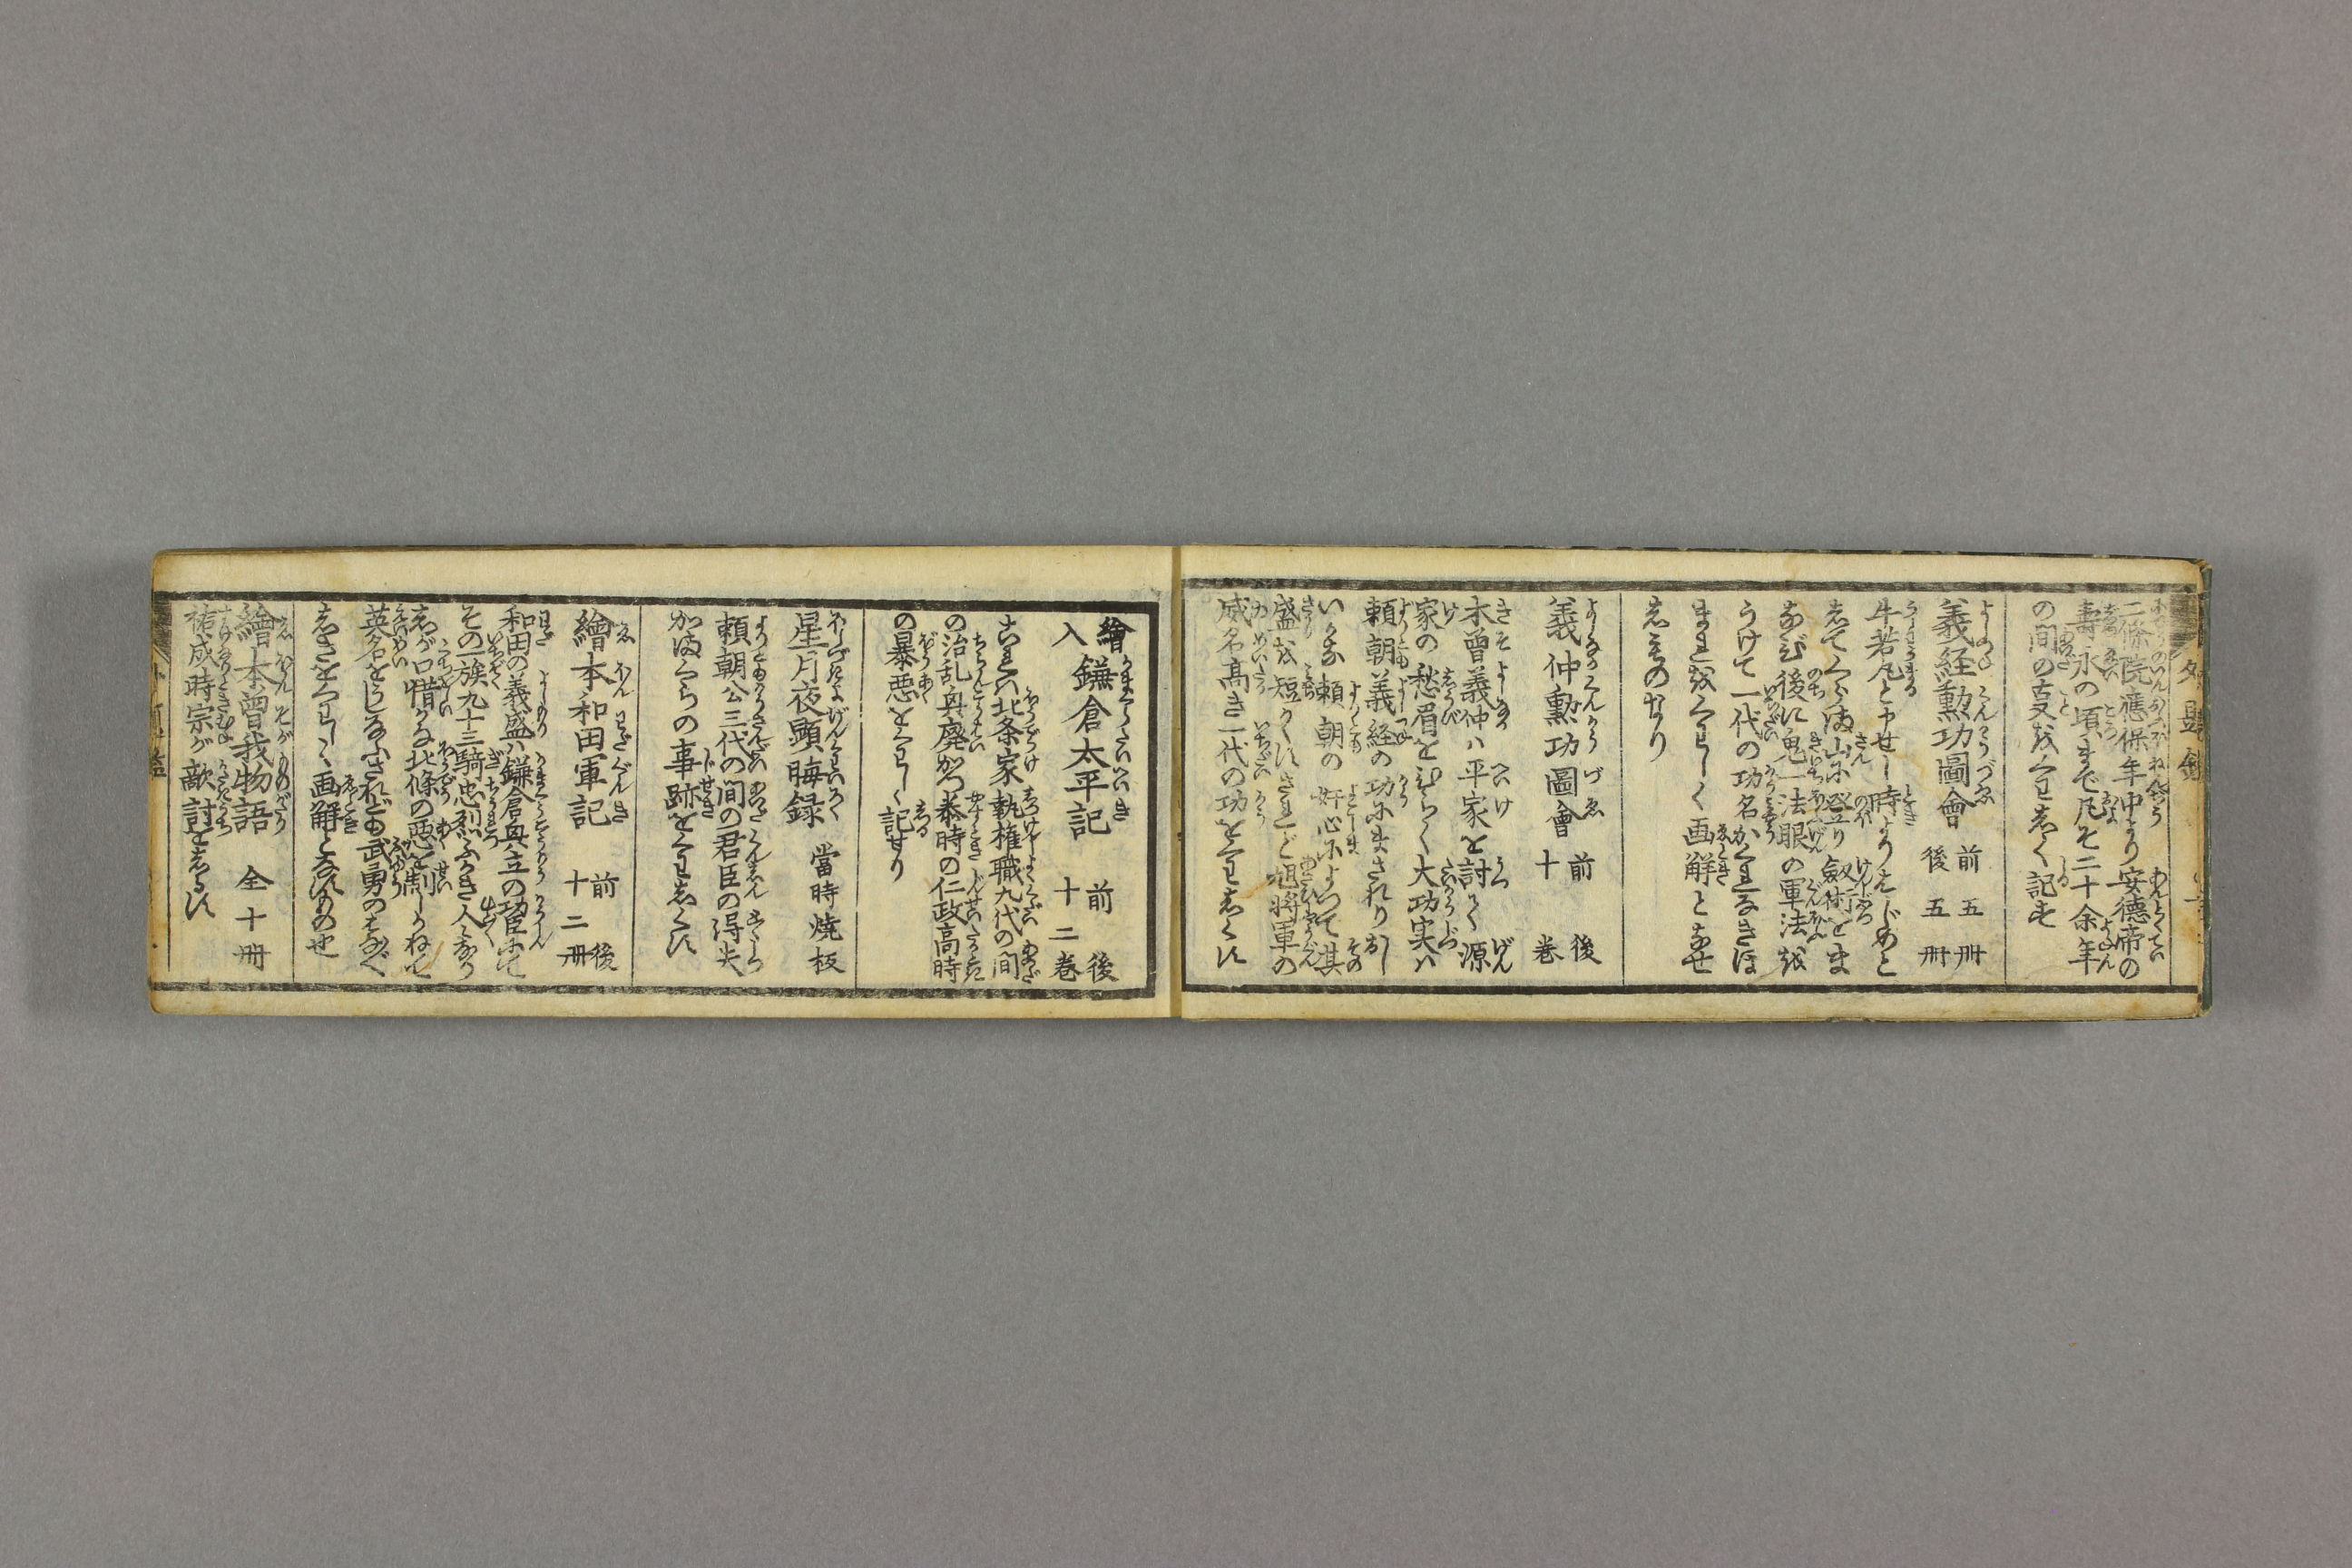 二條院應保年中より安徳帝の
壽永の頃まで凡そ二十余年
の間の支をくわしく記す
義経勲功圖會 前五冊 後五冊
牛若丸と申せし時よりはじめと
してくらま山に登り劔術をま
なび後に鬼一法眼の軍法を
うけて一代の功名かくれなきほ
まれをくわしく画解となせ
しものなり
義仲勲功圖會 前後十巻
木曽義仲ハ平家を討て源
家の愁眉をひらく大功実ハ
頼朝義経の功にまされりおし
いかな頼朝の奸心によつて其
盛を短くすされど旭将軍の
威名高き一代の功をくわしくす
繪入鎌倉太平記 前後十二巻
これハ北条家執権職九代の間
の治乱興廃かつ泰時の仁政高時
の暴悪をくわしく記せり
星月夜顕晦録 當時焼板
頼朝公三代の間の君臣の得失
かまくらの事跡をくわしくす
繪本和田軍記 前後十二冊
和田の義盛ハ鎌倉興立の功臣にて
その一族九十三騎忠烈ふかき人々なり
しが口惜かな北條の悪を制しかねて
英名をうしなふされども武勇のはなべ
しきをくわしく画解となすもの也
繪本曽我物語 全十冊
祐成時宗が敵討をしるす